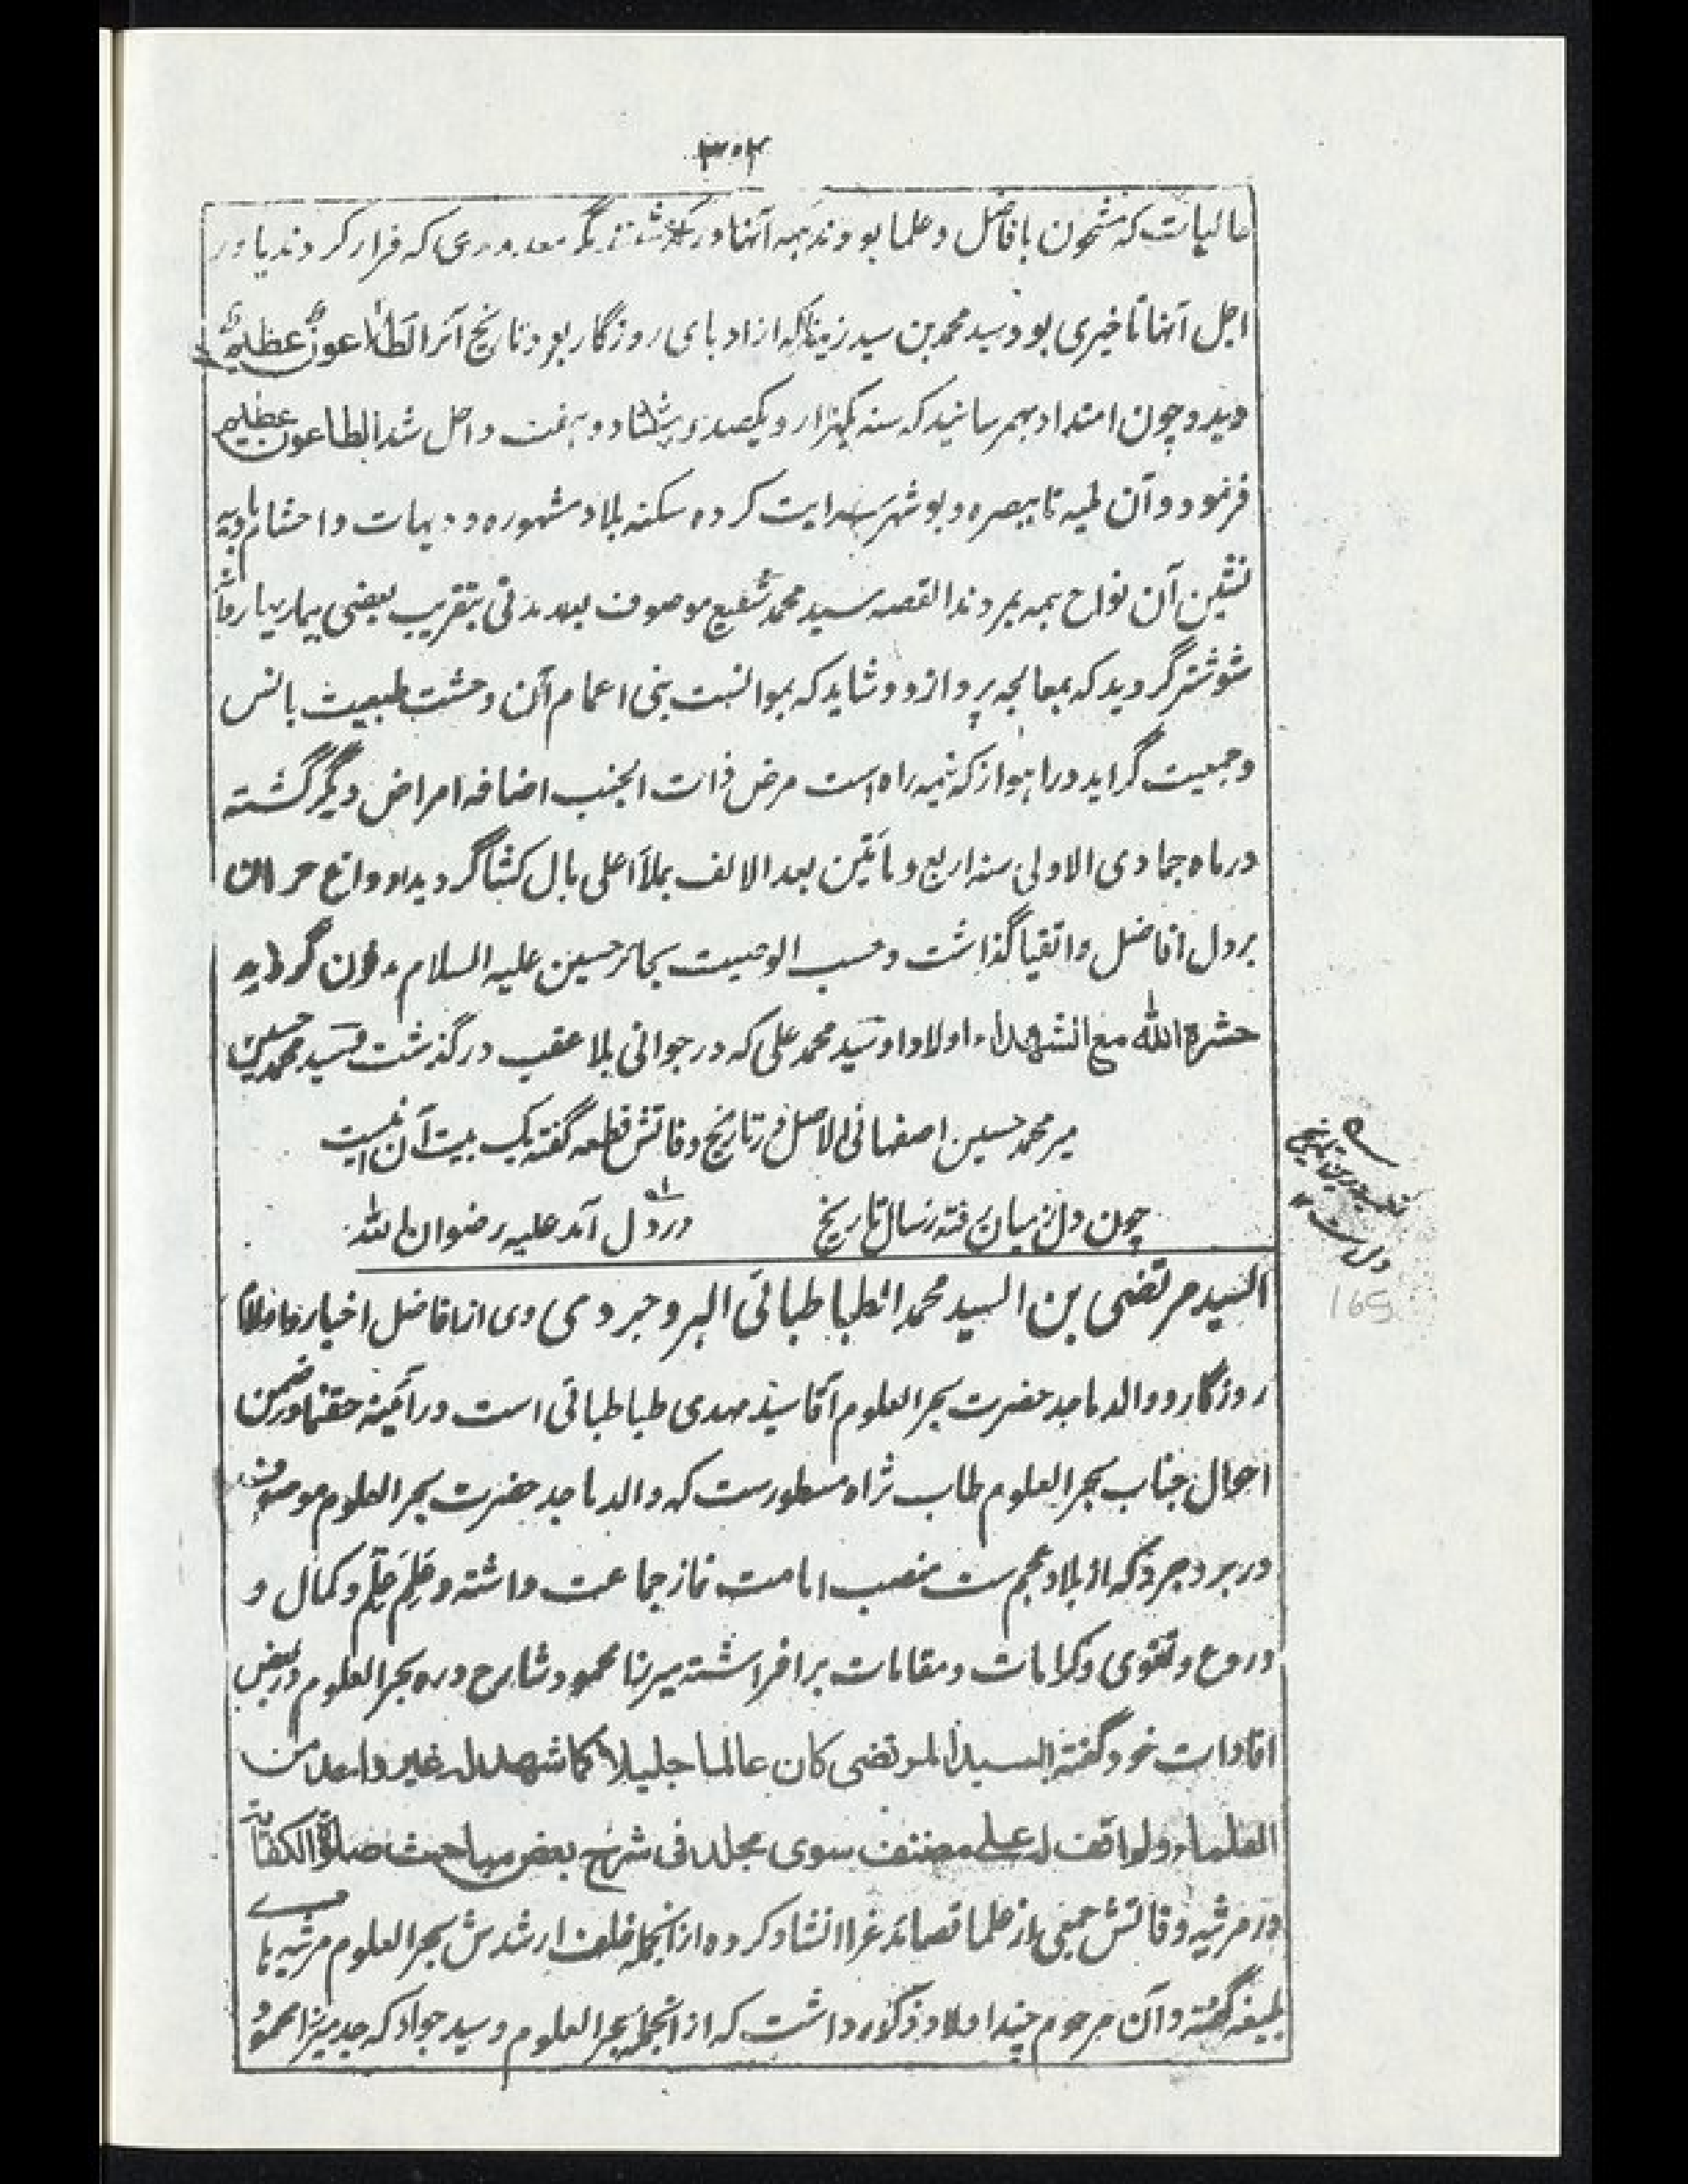 عالیات که مشحون بافاضل و علما بودند همه آنها در گذشتند مگر معدودی که فرار کردند یا در
اجل آنها تاخیری بود و سید محمد بن سید زینا که از ادبای روزگار بود تاریخ آنرا الطاعون عظیم
دید و چون امتداد بهم رسانید که سنه یکهزار و یکصد و هشتاد و هفت داخل شد الطاعون عظیم
فرمود و آن طمه تا ببصره و بوشهر سرایت کرده سکنه بلاد مشهوره و دیهات و احشام بادیه
نشین آن نواح همه بمردند القصه سید محمد شفیع موصوف بعد مدتی بتقریب بعضی بیماریها
شوشتر گردید که بمعالجه پردازد و شاید که بموانست بنی اعمام آن وحشت طبیعت بانس
و جمعیت گراید در اهواز که نیمه راه است مرض ذات الجنب اضافه امراض دیگر گشته
در ماه جمادی الاولی سنه اربع و مأتین بعد الالف بملأ اعلی بال کشا گردید و داغ حرمان
بر دل افاضل و اتقیا گذاشت و حسب الوصیت بحائر حسین علیه السلام مدفون گردید
حشره الله مع الشهداء اولاد او سید محمد علی که در جوانی بلا عقب در گذشت و سید محمد حسین
میر محمد حسین اصفهانی الاصل در تاریخ وفاتش قطعه گفته یک بیت آن اینست
چون دل ز میان رفت ز سال تاریخ درد دل آمد علیه رضوان الله
السید مرتضی بن السید محمد الطباطبائی البروجردی وی از افاضل اخیار و اماثل
روزگار و والد ماجد حضرت بحر العلوم آقا سید مهدی طباطبائی است در آئینه حقنما در ضمن
احوال جناب بحر العلوم طاب ثراه مسطورست که والد ماجد حضرت بحر العلوم موصوف
در بروجرد که از بلاد عجم ست منصب امامت نماز جماعت داشته و علم علم و کمال و
ورع و تقوی و کرامات و مقامات بر افراشته میرزا محمود شارح دره بحر العلوم در بعض
افادات خود گفته السید المرتضی کان عالما جلیلا کما شهد له غیر واحد من
العلماء ولم اقف له علی مصنف سوی مجلد فی شرح بعض مباحث صلوة الکفایة
در مرثیه وفاتش جمعی از علما قصائد غرا انشاد کرده از انجمله خلف ارشدش بحر العلوم مرثیه
بلیغه گفته و آن مرحوم چند اولاد ذکور داشت که از انجمله بحر العلوم و سید جواد که جد میرزا محمود
165